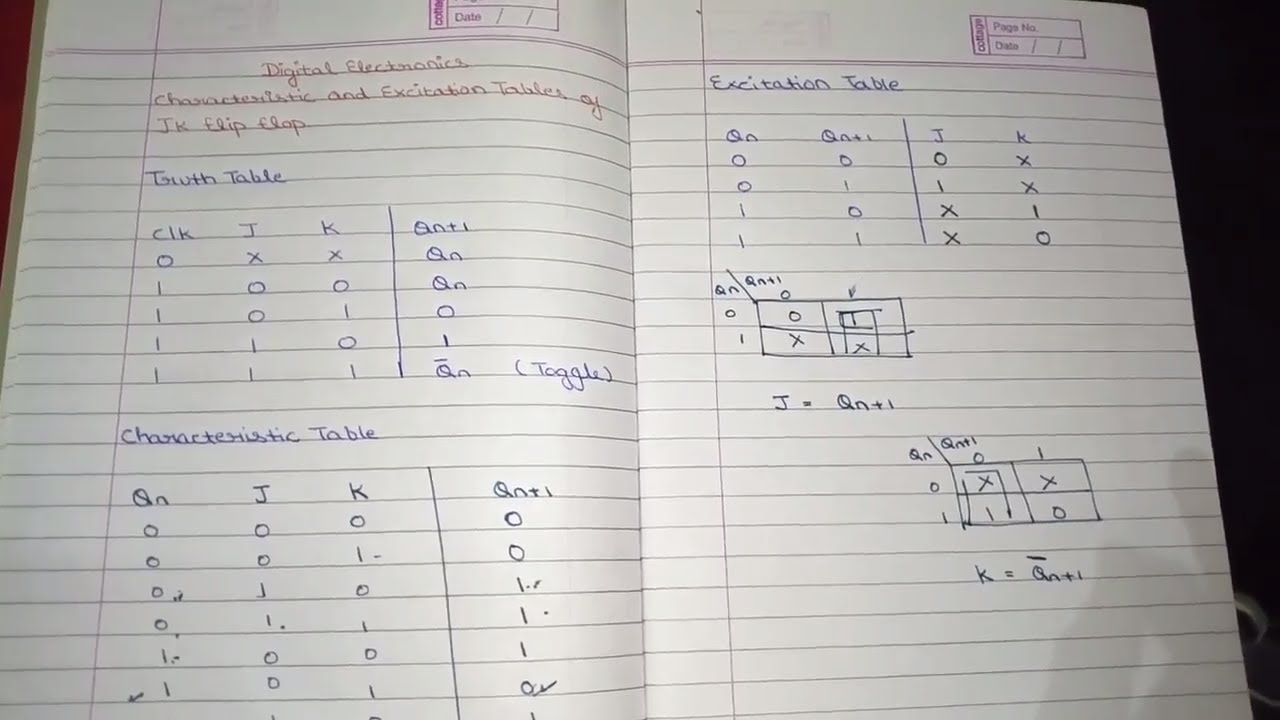 cottage
Date / /
Digital Electronics
Characteristic and Excitation Tables of
JK flip flop
Truth Table
Clk J K Qn+1
0 x x Qn
1 0 0 Qn
1 0 1 0
1 1 0 1
1 1 1 Q̅n (Toggle)
Characteristic Table
Qn J K Qn+1
0 0 0 0
0 0 1 0
0 1 0 1
0 1 1 1
1 0 0 1
1 0 1 0
cottage
Page No.
Date / /
Excitation Table
Qn Qn+1 J K
0 0 0 x
0 1 1 x
1 0 x 1
1 1 x 0
Qn Qn+1
0
0 0 1
1 x x
J = Qn+1
Qn Qn+1
0 1
0 x x
1 1 0
K = Q̅n+1